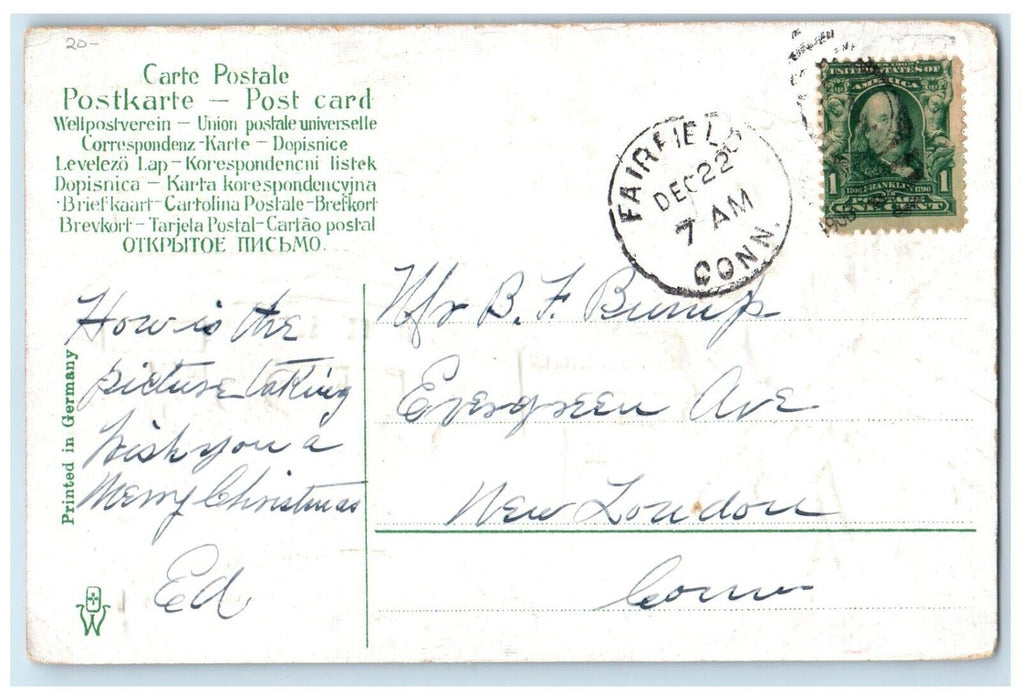 20-
Carte Postale
Postkarte — Post card
Weltpostverein — Union postale universelle
Correspondenz-Karte — Dopisnice
Levelező Lap — Korespondencni listek
Dopisnica — Karta korespondencyjna
Briefkaart — Cartolina Postale — Brefkort
Brevkort — Tarjeta Postal — Cartão postal
ОТКРЫТОЕ ПИСЬМО.
FAIRFIELD
DEC 22
7 AM
CONN.
UNITED STATES OF
AMERICA
1 1
1706 FRANKLIN 1790
POSTAGE
ONE CENT
1908
How is the
picture taking
Wish you a
Merry Christmas
Ed
Mr B. F. Bump
Evergreen Ave
New London
Conn
Printed in Germany
W